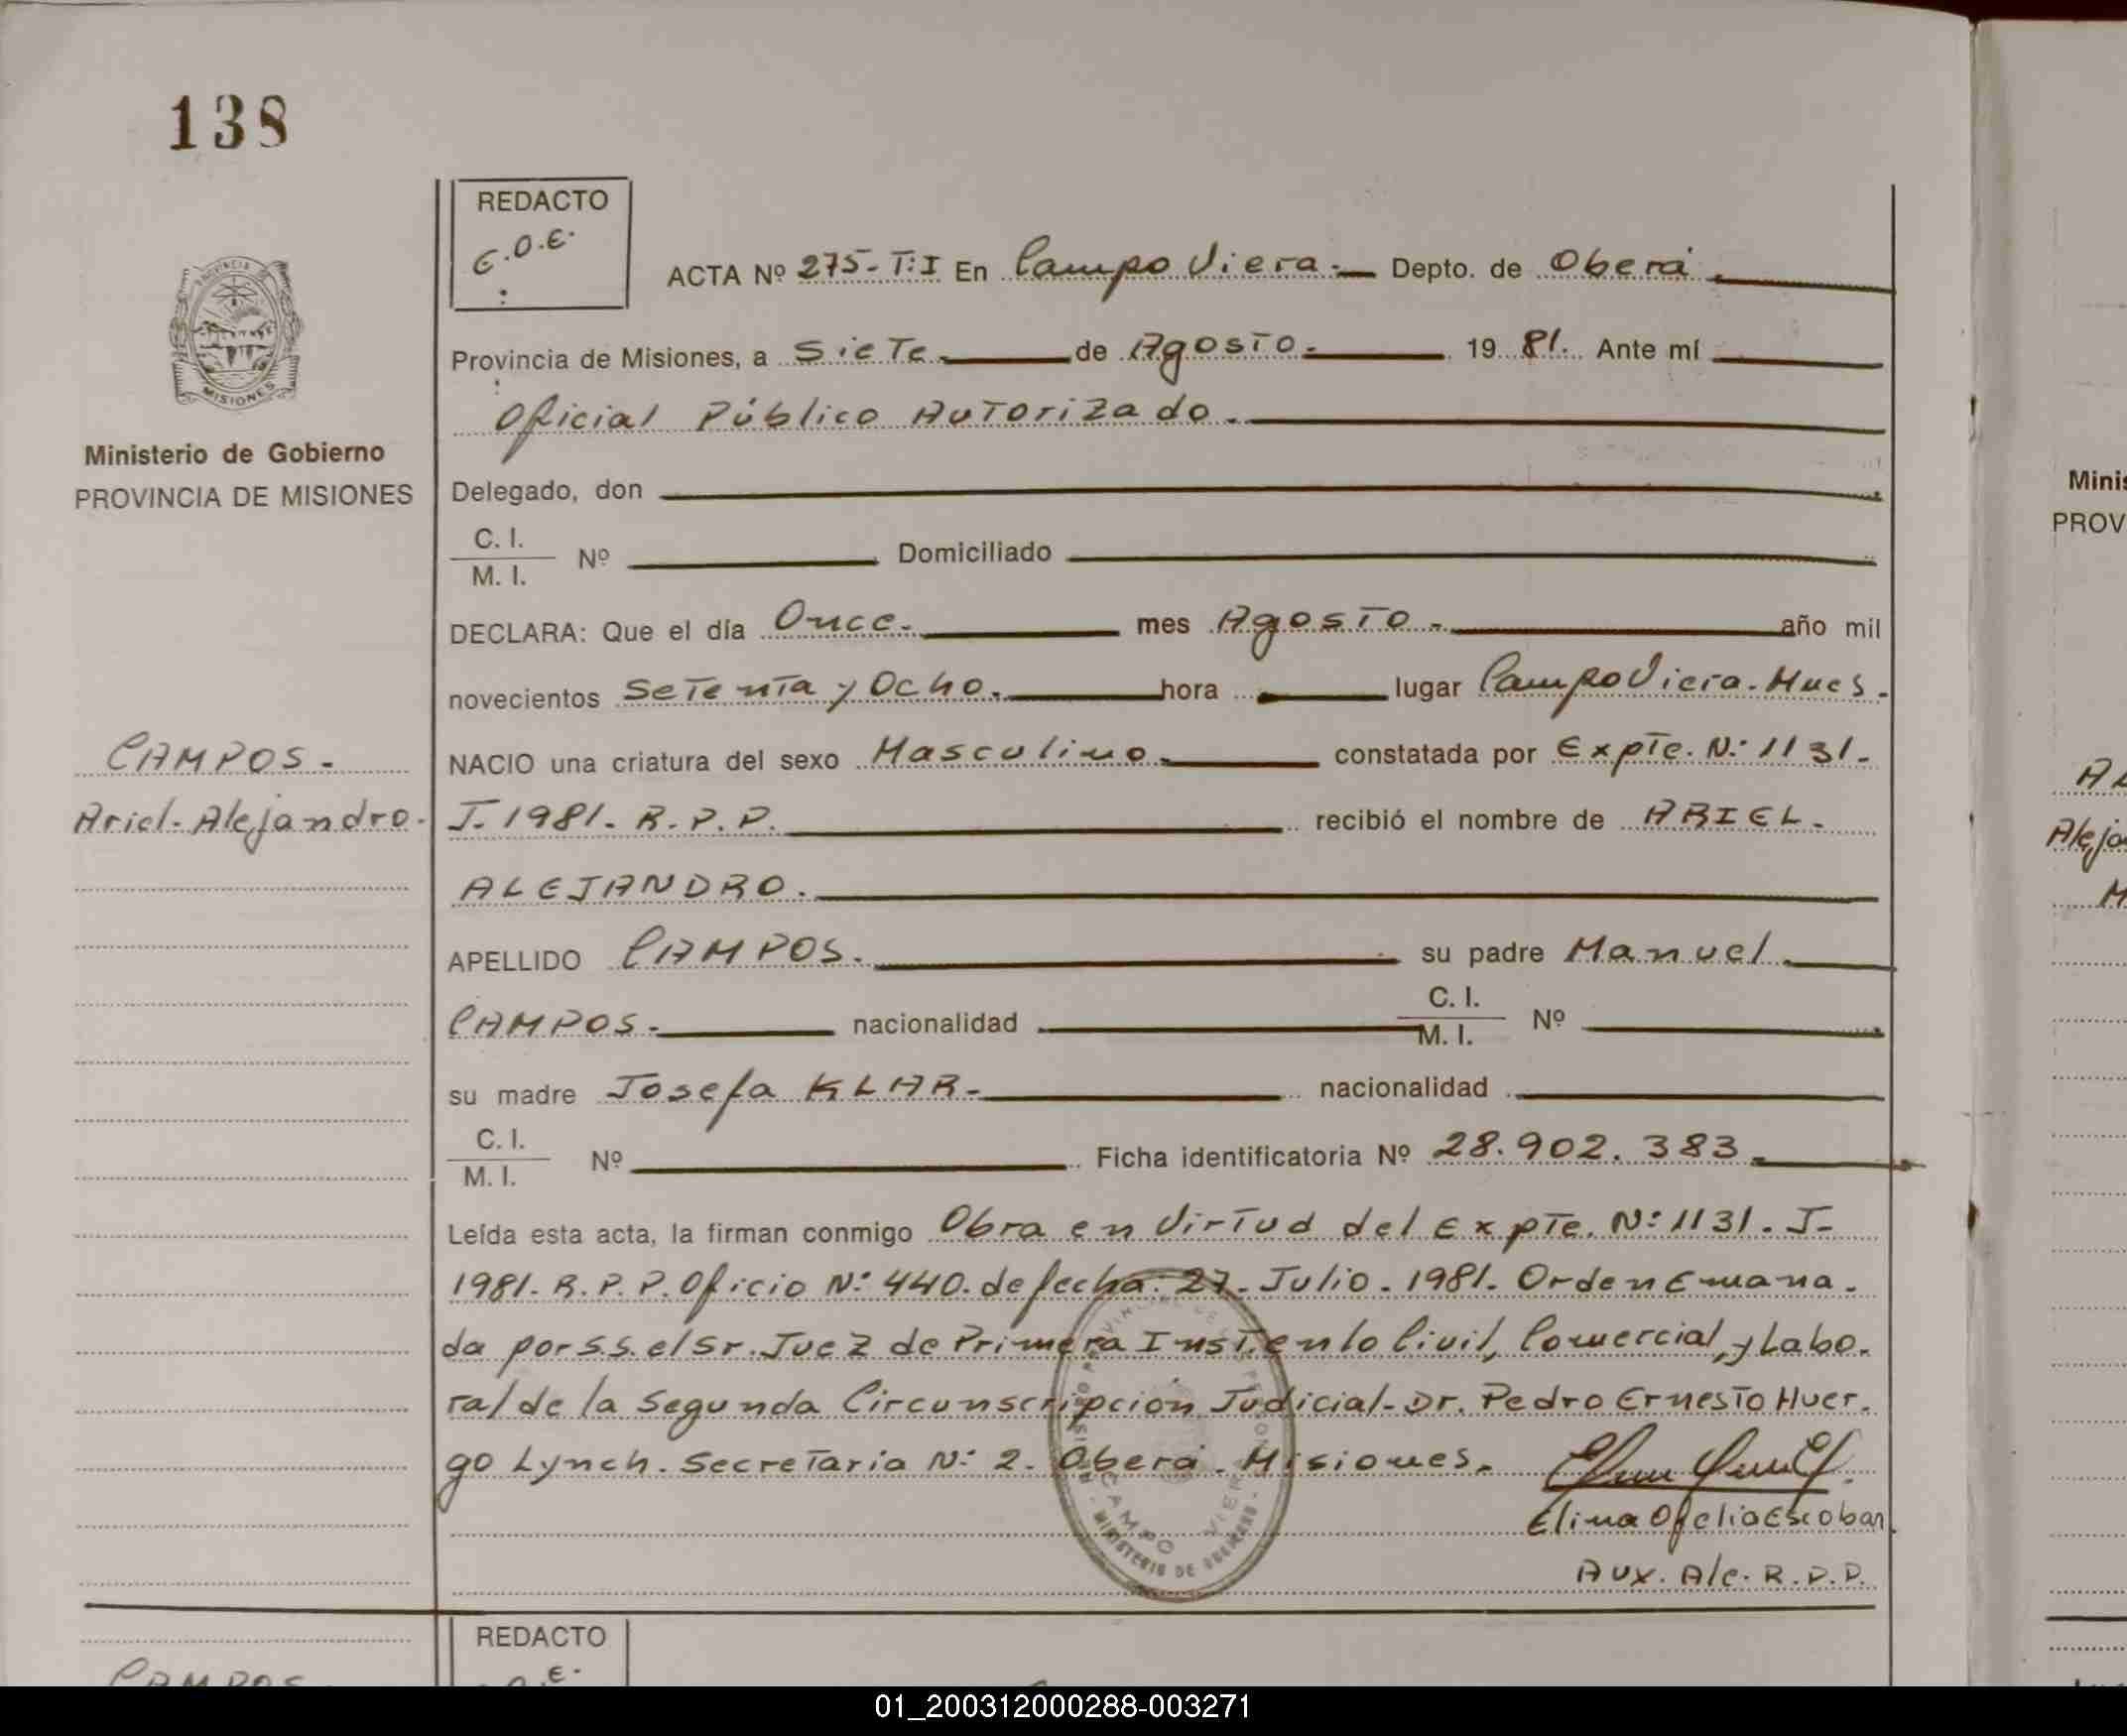 138
REDACTO
E.O.E.
PROVINCIA
MISIONES
ACTA Nº 275-T:I En Campo Viera.- Depto. de Oberá.
Provincia de Misiones, a Siete. de Agosto. 19 81. Ante mí
Oficial Público Autorizado.
Ministerio de Gobierno
PROVINCIA DE MISIONES
Delegado, don
C. I.
M. I. Nº Domiciliado
DECLARA: Que el día Once. mes Agosto. año mil
novecientos Setenta y Ocho. hora lugar Campo Viera. Mnes.
NACIO una criatura del sexo Masculino. constatada por Expte. Nº: 1131.
J. 1981. R.P.P. recibió el nombre de ARIEL.
ALEJANDRO.
CAMPOS.
Ariel-Alejandro.
APELLIDO CAMPOS. su padre Manuel.
CAMPOS. nacionalidad C. I. M. I. Nº
su madre Josefa KLAR. nacionalidad
C. I.
M. I. Nº Ficha identificatoria Nº 28.902.383.
Leída esta acta, la firman conmigo Obra en Virtud del Expte. Nº: 1131. J-
1981. R.P.P. Oficio Nº: 440. de fecha: 27. Julio. 1981. Orden Emana-
da por S.S. el Sr. Juez de Primera Inst. en lo Civil, Comercial, y Labo-
ral de la Segunda Circunscripción Judicial-Dr. Pedro Ernesto Huer-
go Lynch. Secretaria Nº: 2. Oberá. Misiones.
Elina Ofelia Escobar
Aux. A/c. R.P.P.
CAMPO VIERA
MINISTERIO DE GOBIERNO
REDACTO
E.
CAMPOS
Minis
PROV
AL
Aleja
M
01_200312000288-003271